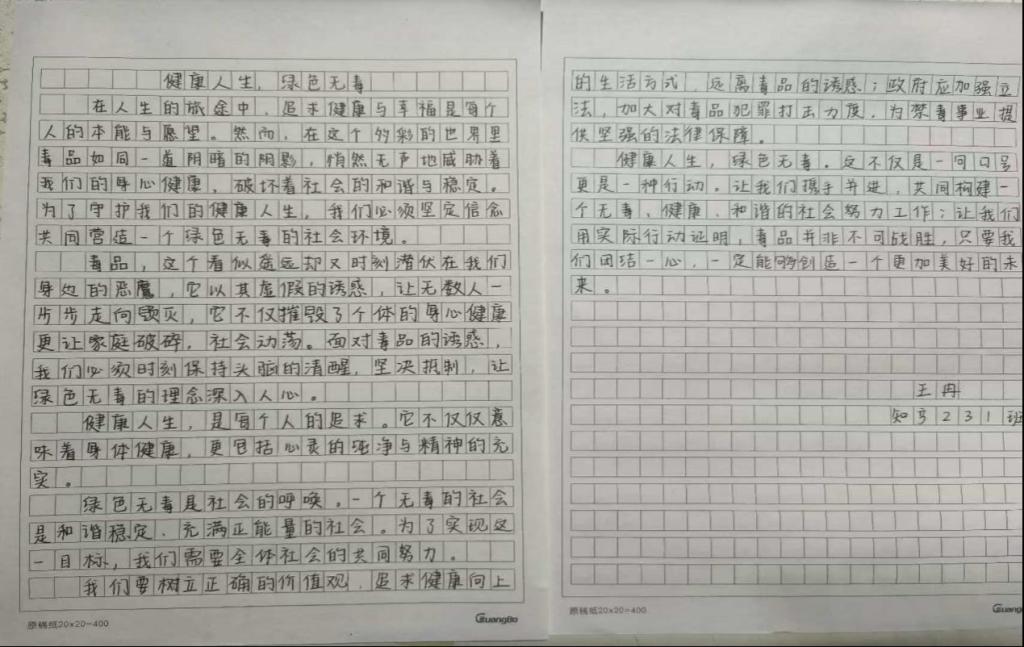 健康人生，绿色无毒
在人生的旅途中，追求健康与幸福是每个
人的本能与愿望。然而，在这个多彩的世界里
毒品如同一道阴暗的阴影，悄然无声地威胁着
我们的身心健康，破坏着社会的和谐与稳定。
为了守护我们的健康人生，我们必须坚定信念
共同营造一个绿色无毒的社会环境。
毒品，这个看似遥远却又时刻潜伏在我们
身边的恶魔，它以其虚假的诱惑，让无数人一
步步走向毁灭，它不仅摧毁了个体的身心健康
更让家庭破碎，社会动荡。面对毒品的诱惑，
我们必须时刻保持头脑的清醒，坚决抵制，让
绿色无毒的理念深入人心。
健康人生，是每个人的追求。它不仅仅意
味着身体健康，更包括心灵的纯净与精神的充
实。
绿色无毒是社会的呼唤。一个无毒的社会
是和谐稳定、充满正能量的社会。为了实现这
一目标，我们需要全体社会的共同努力。
我们要树立正确的价值观，追求健康向上
原稿纸20×20=400
GuangBo
的生活方式，远离毒品的诱惑；政府应加强立
法，加大对毒品犯罪打击力度，为禁毒事业提
供坚强的法律保障。
健康人生，绿色无毒。这不仅是一句口号
更是一种行动。让我们携手并进，共同构建一
个无毒、健康、和谐的社会努力工作；让我们
用实际行动证明，毒品并非不可战胜，只要我
们团结一心，一定能够创造一个更加美好的未
来。
王冉
知号231班
原稿纸20×20=400
Gua